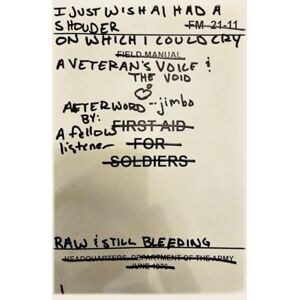 I JUST WISH AI HAD A
SHOUDER
FM 21-11
ON WHICH I COULD CRY
FIELD MANUAL
A VETERAN'S VOICE &
THE VOID
AFTERWORD --jimbo
BY:
A fellow
listener
FIRST AID
FOR
SOLDIERS
RAW & STILL BLEEDING
HEADQUARTERS, DEPARTMENT OF THE ARMY
JUNE 1976